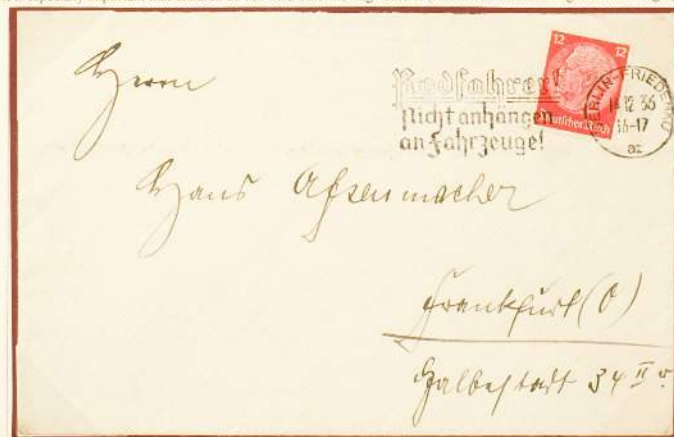 Herrn
12 12
Radfahrer
nicht anhängen
an Fahrzeuge!
Deutsches Reich
BERLIN-FRIEDENAU
16-17
az
Hans Assenmacher
Frankfurt (O)
Halbestadt 34 II r.